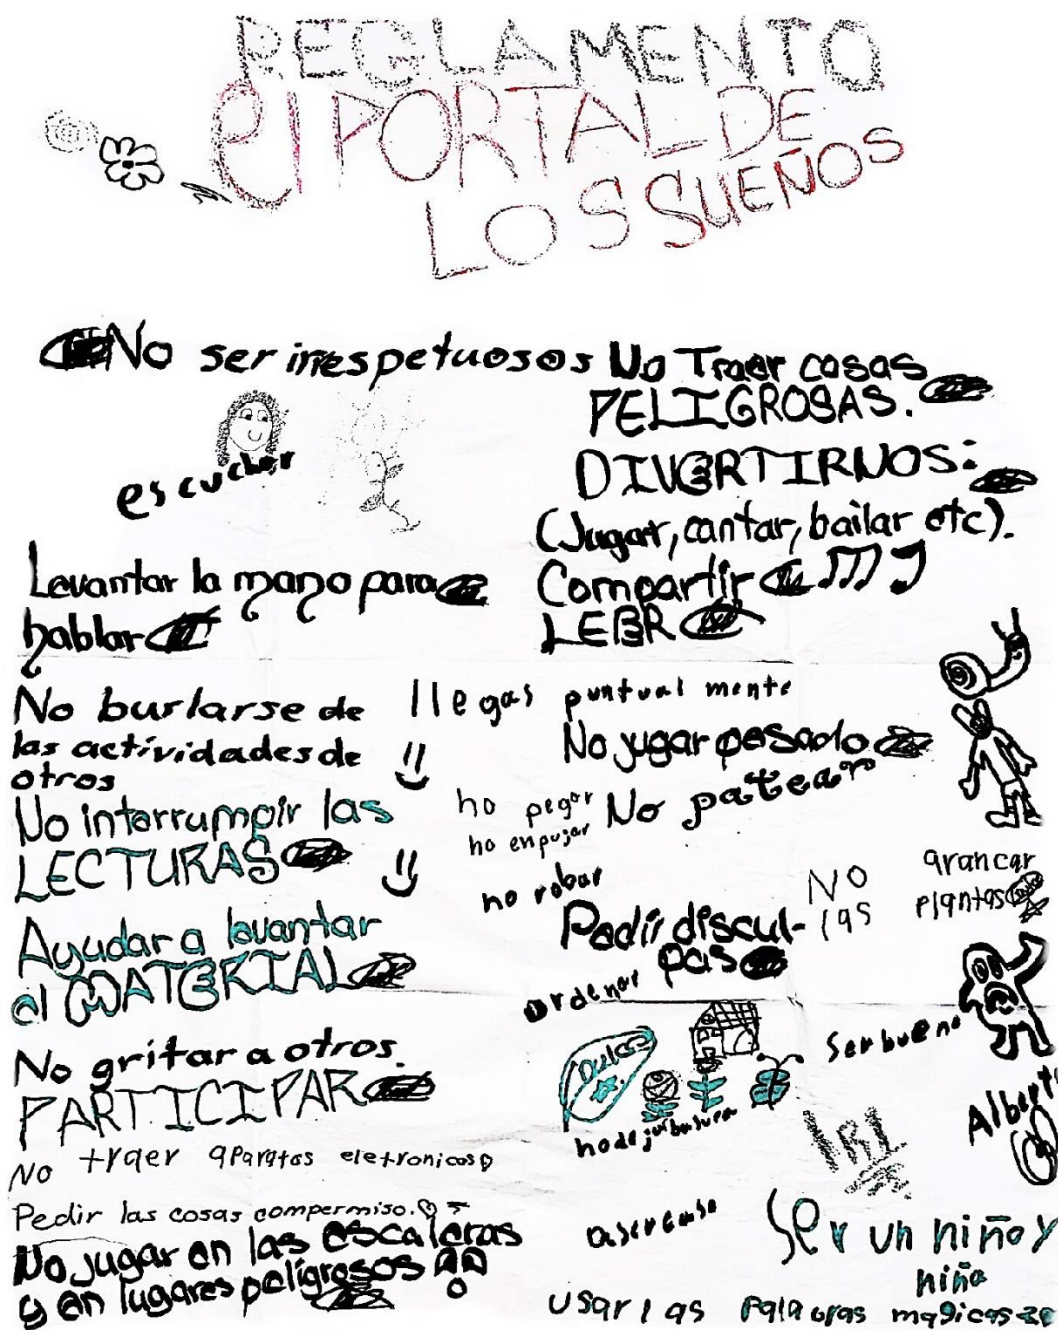 REGLAMENTO
El PORTAL DE
LOS SUEÑOS
No ser irrespetuosos
escuchar
Levantar la mano para
hablar
No burlarse de
las actividades de
otros
No interrumpir las
LECTURAS
Ayudar a levantar
el MATERIAL
No gritar a otros.
PARTICIPAR
No traer aparatos eletronicos
Pedir las cosas compermiso.
No jugar en las escaleras
y en lugares peligrosos
No Traer cosas
PELIGROSAS.
DIVERTIRNOS:
(Jugar, cantar, bailar etc).
Compartir
LEER
llegar puntual mente
No jugar pesado
no pegar
no enpujar
No patear
no robar
NO arancar
las plantas
Pedir discul-
pas
ordenar
Dulce
Ser bueno
no dejar basura
IRI
Ser un niño y
niña
usar las palabras magicas